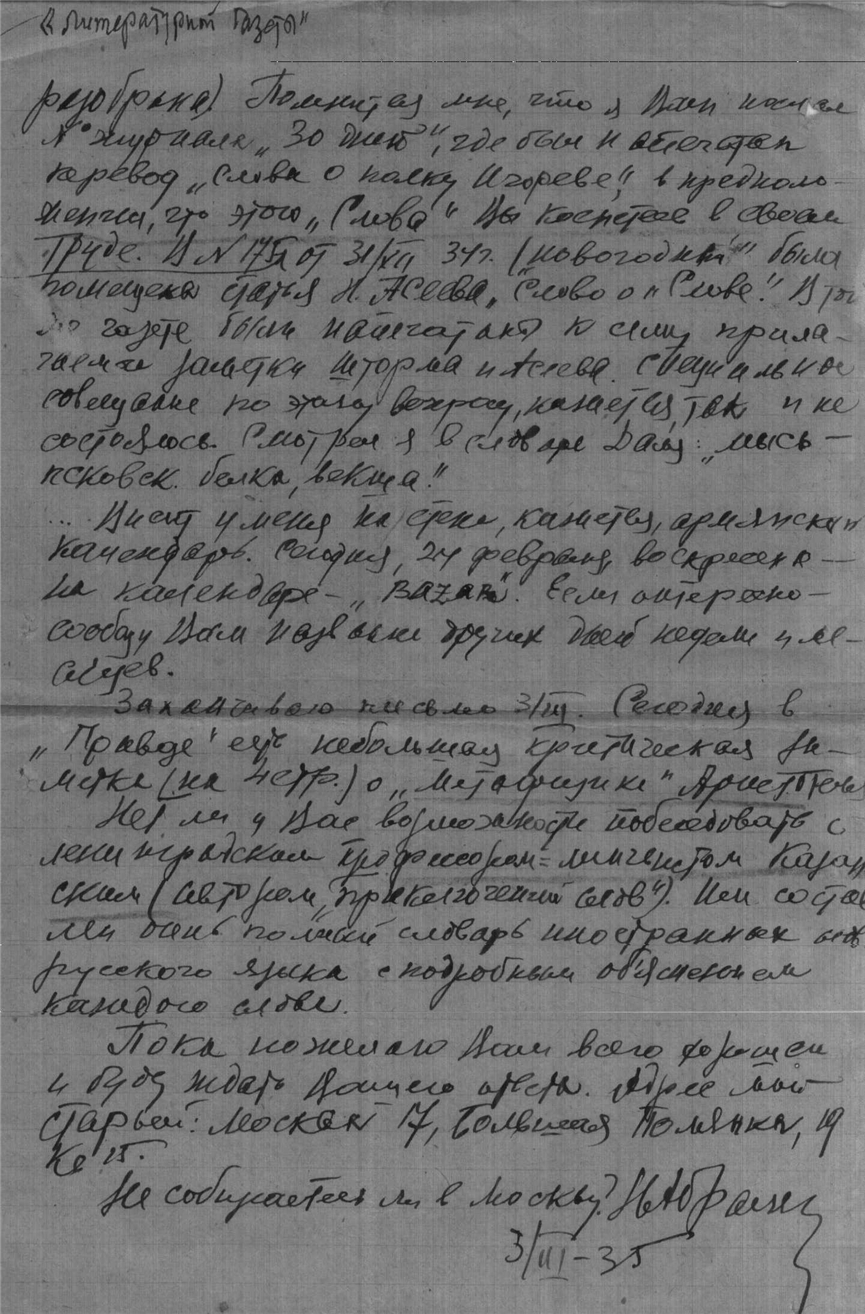 „Литературной Газеты"
разобрана). Помнится мне, что я Вам послал
№ журнала „30 дней", где был напечатан
перевод „Слова о полку Игореве", в предполо-
жении, что этого „Слова" Вы коснетесь в своем
труде. В № 175 от 31/XII 34 г. (новогодний) была
помещена статья Н. Асеева „Слово о „Слове". В той
же газете были напечатаны к сему прила-
гаемые заметки Шторма и Асеева. Специальное
совещание по этому вопросу, кажется, так и не
состоялось. Смотрел я в словаре Даля: „мысь —
псковск. белка, векша."
... Висит у меня на стене, кажется, армянский
календарь. Сегодня, 24 февраля, воскресенье —
на календаре — „Bazar". Если интересно —
сообщу Вам название других дней недели и ме-
сяцев.
Заканчиваю письмо 3/III. Сегодня в
„Правде" есть небольшая критическая за-
метка (на 4 стр.) о „Метафизике" Аристотеля
Нет ли у Вас возможности побеседовать с
ленинградским профессором-лингвистом Казан-
ским (автором „Приключений слов"). Им состав
лен очень полный словарь иностранных слов
русского языка с подробным объяснением
каждого слова.
Пока пожелаю Вам всего хорошего
и буду ждать Вашего ответа. Адрес мой
старый: Москва 17, Большая Полянка, 19
кв 15.
Не собираетесь ли в Москву?
3/III-35